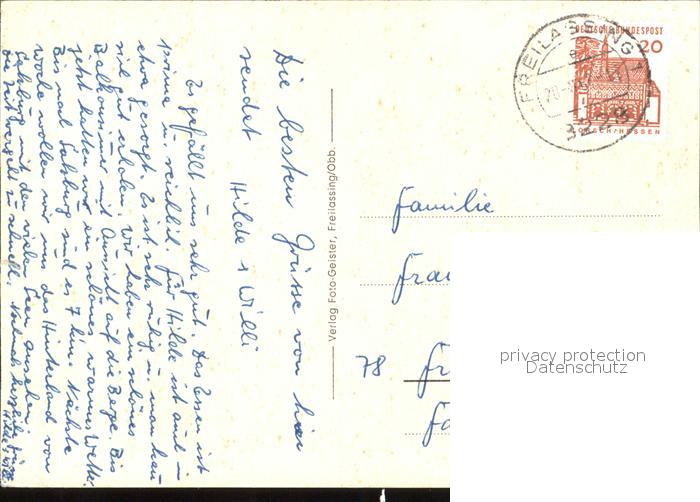 Die besten Grüsse von hier
sendet Hilde & Willi
Es gefällt uns sehr gut. Das Essen ist
prima u. reichlich. Für Hilde ist auch
etwas gesorgt. Es ist sehr ruhig u. man kann
sich gut erholen. Wir haben ein schönes
Balkonzimmer mit Aussicht auf die Berge. Bis
jetzt hatten wir ein schönes warmes Wetter.
Bis nach Salzburg sind es 7 km. Nächste
Woche wollen wir uns das Hinterland von
Salzburg mit den vielen Seen ansehen.
Die Zeit vergeht zu schnell. Nochmals herzliche Grüsse
Hilde & Willi
Verlag Foto-Geister, Freilassing/Obb.
FREILASSING 1
DEUTSCHE BUNDESPOST
20
LORSCH/HESSEN
Familie
78
privacy protection
Datenschutz